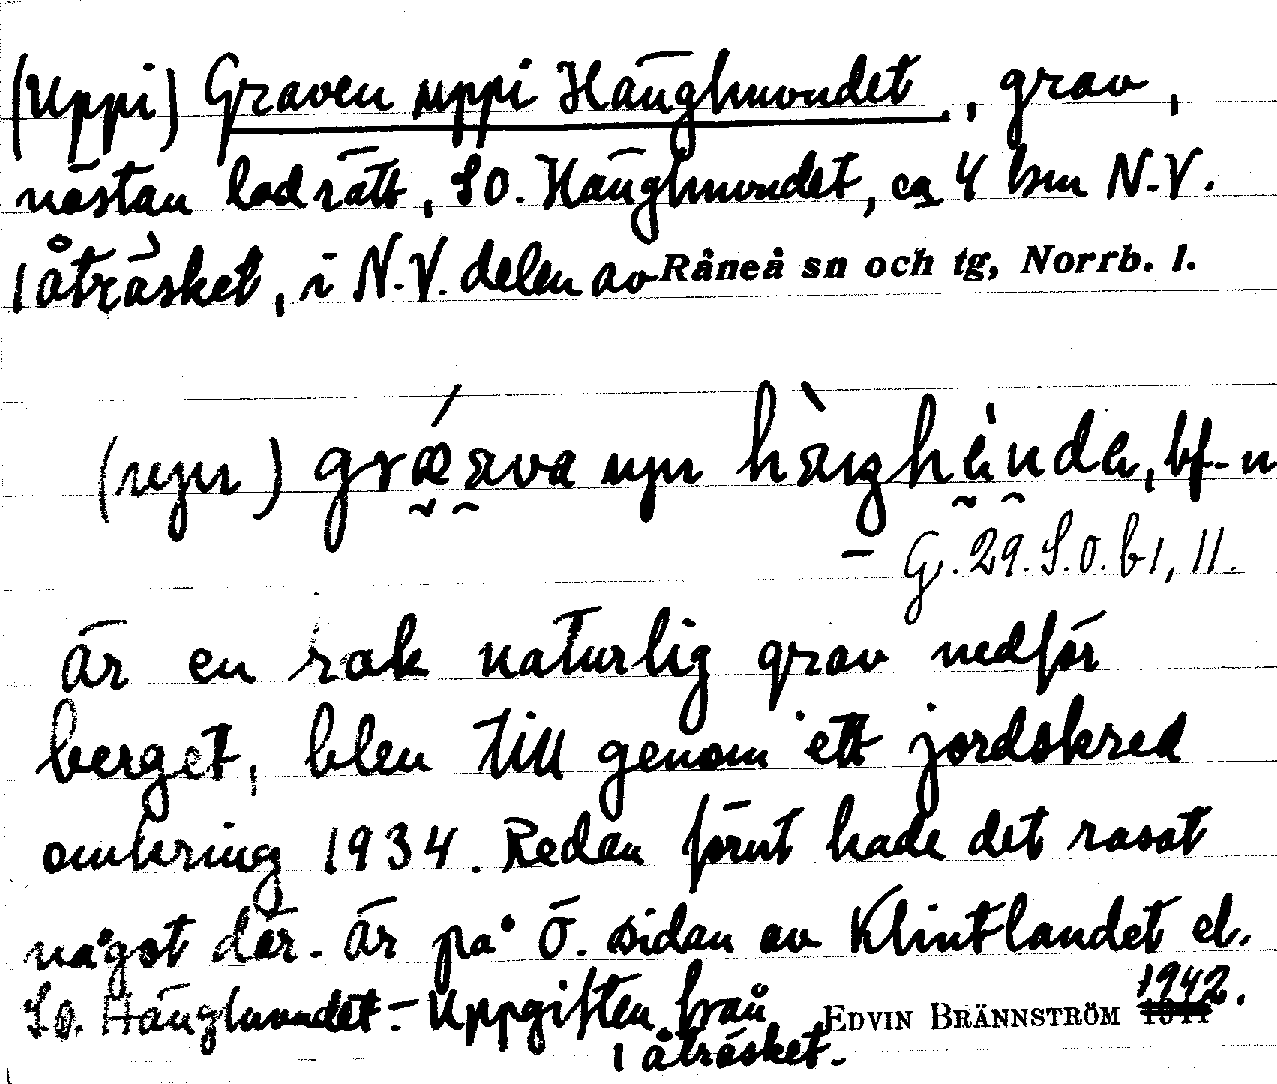 (Uppi) Graven uppi Hänghundet, grav,
nästan lodrätt, SO. Hänghundet, ca 4 km N.V.
1 åträsket, i N.V. delen av Råneå sn och tg, Norrb. l.
bf. n
G. 29. S.O. b 1, 11.
är en rak naturlig grav nedför
berget, blev till genom ett jordskred
omkring 1934. Redan förut hade det rasat
något där. Är på Ö. sidan av Klintlandet el.
SO. Hänghundet. - Uppgiften från EDVIN BRÄNNSTRÖM 1942.
1 åträsket.